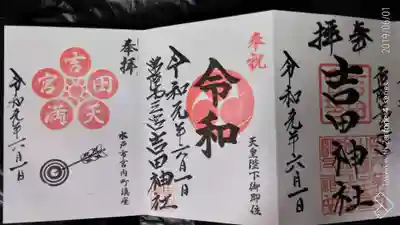 奉拝
吉田神社
令和元年六月一日
奉祝
令和
天皇陛下御即位
令和元年六月一日
常陸第三宮吉田神社
奉拝
水戸市宮内町鎮座
吉田天満宮
令和元年六月一日
2019/06/01